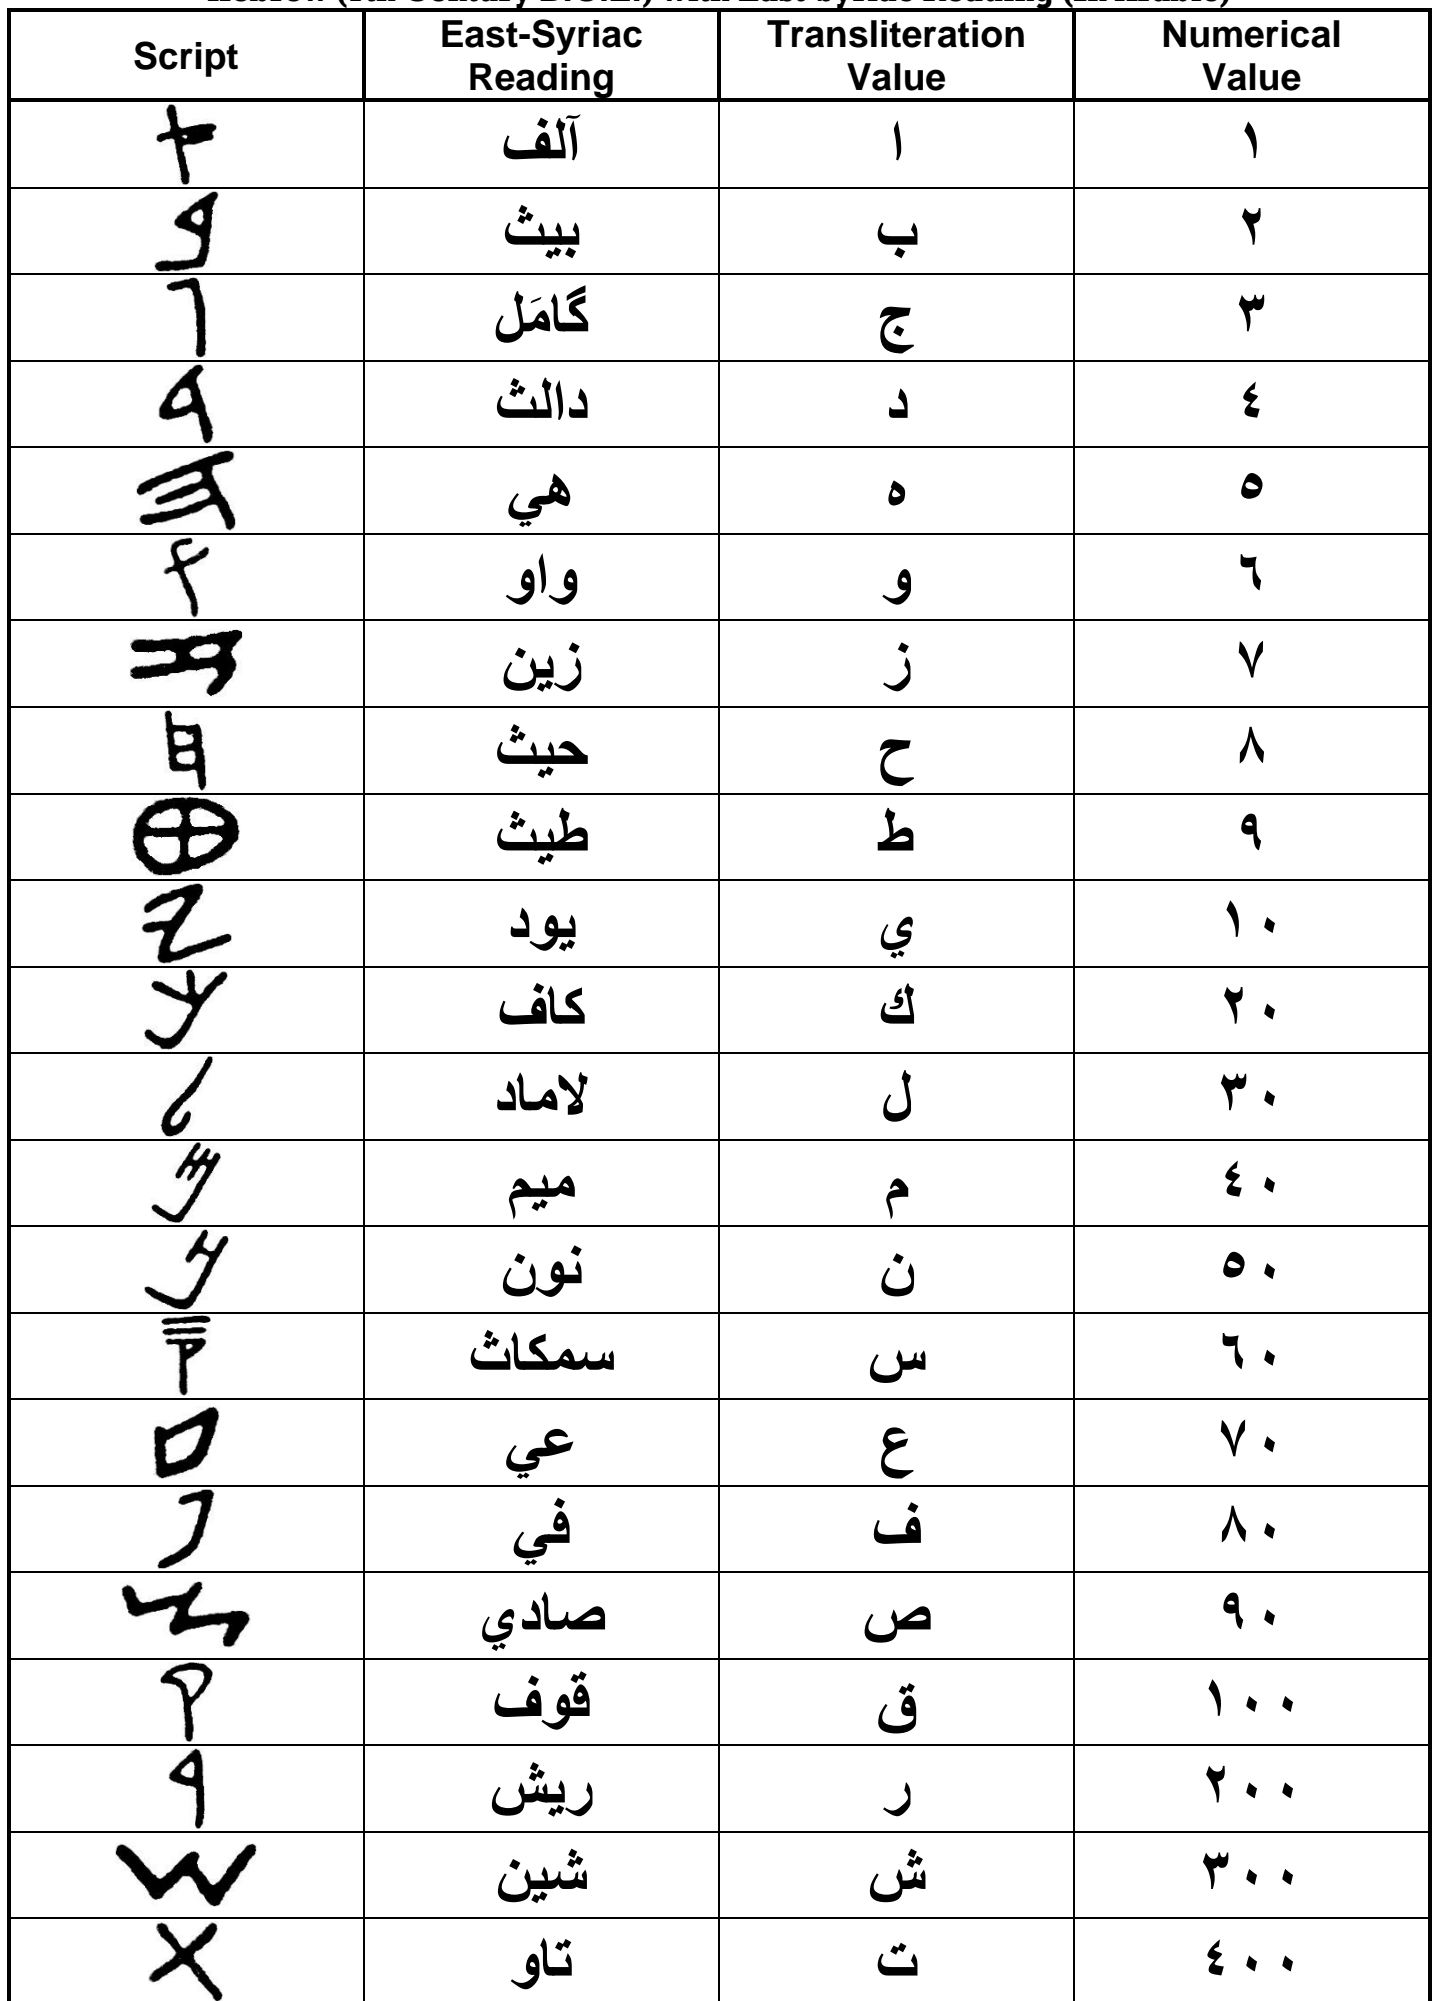 Script East-Syriac Reading Transliteration Value Numerical Value
𐤀 آلف ا ١
𐤁 بيث ب ٢
𐤂 گامَل ج ٣
𐤃 دالث د ٤
𐤄 هي ه ٥
𐤅 واو و ٦
𐤆 زين ز ٧
𐤇 حيث ح ٨
𐤈 طيث ط ٩
𐤉 يود ي ١٠
𐤊 كاف ك ٢٠
𐤋 لاماد ل ٣٠
𐤌 ميم م ٤٠
𐤍 نون ن ٥٠
𐤎 سمكاث س ٦٠
𐤏 عي ع ٧٠
𐤐 في ف ٨٠
𐤑 صادي ص ٩٠
𐤒 قوف ق ١٠٠
𐤓 ريش ر ٢٠٠
𐤔 شين ش ٣٠٠
𐤕 تاو ت ٤٠٠